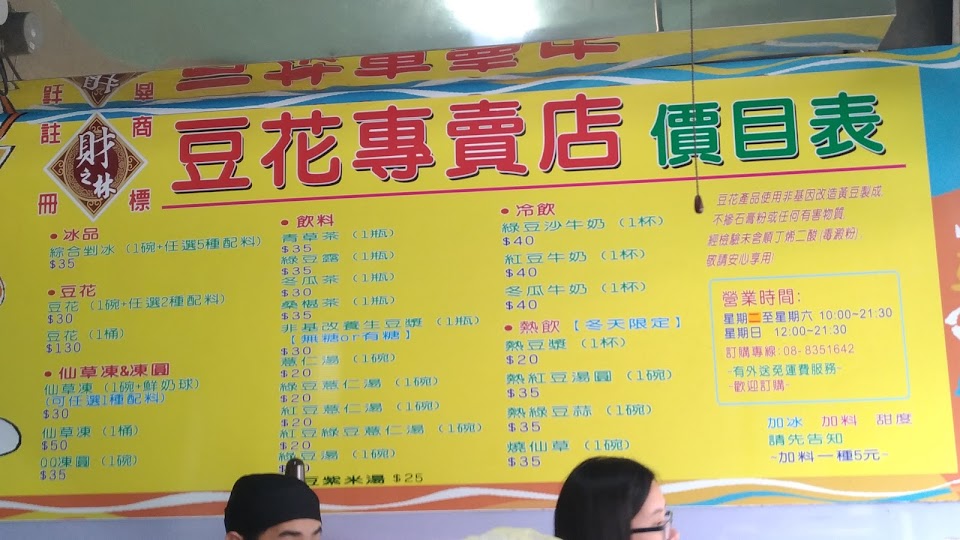 註冊商標
財之林
豆花專賣店 價目表
• 冰品
綜合剉冰 (1碗+任選5種配料)
$35
• 豆花
豆花 (1碗+任選2種配料)
$30
豆花 (1桶)
$130
• 仙草凍&凍圓
仙草凍 (1碗+鮮奶球)
(可任選1種配料)
$30
仙草凍 (1桶)
$50
QQ凍圓 (1碗)
$35
• 飲料
青草茶 (1瓶)
$35
綠豆露 (1瓶)
$35
冬瓜茶 (1瓶)
$30
桑椹茶 (1瓶)
$35
非基改養生豆漿 (1瓶)
【無糖or有糖】
$30
薏仁湯 (1碗)
$20
綠豆薏仁湯 (1碗)
$20
紅豆薏仁湯 (1碗)
$20
紅豆綠豆薏仁湯 (1碗)
$20
綠豆湯 (1碗)
豆紫米湯 $25
• 冷飲
綠豆沙牛奶 (1杯)
$40
紅豆牛奶 (1杯)
$40
冬瓜牛奶 (1杯)
$40
• 熱飲【冬天限定】
熱豆漿 (1杯)
$20
熱紅豆湯圓 (1碗)
$35
熱綠豆蒜 (1碗)
$35
燒仙草 (1碗)
$35
豆花產品使用非基因改造黃豆製成
不摻石膏粉或任何有害物質
經檢驗未含順丁烯二酸(毒澱粉)
敬請安心享用!
營業時間:
星期二至星期六 10:00~21:30
星期日 12:00~21:30
訂購專線: 08-8351642
~有外送免運費服務~
~歡迎訂購~
加冰 加料 甜度
請先告知
~加料一種5元~